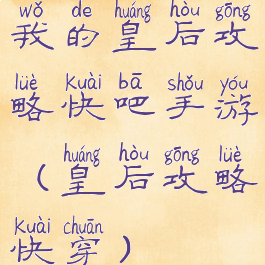 wǒ de huáng hòu gōng
我的皇后攻
lüè kuài bā shǒu yóu
略快吧手游
huáng hòu gōng lüè
（皇后攻略
kuài chuān
快穿）